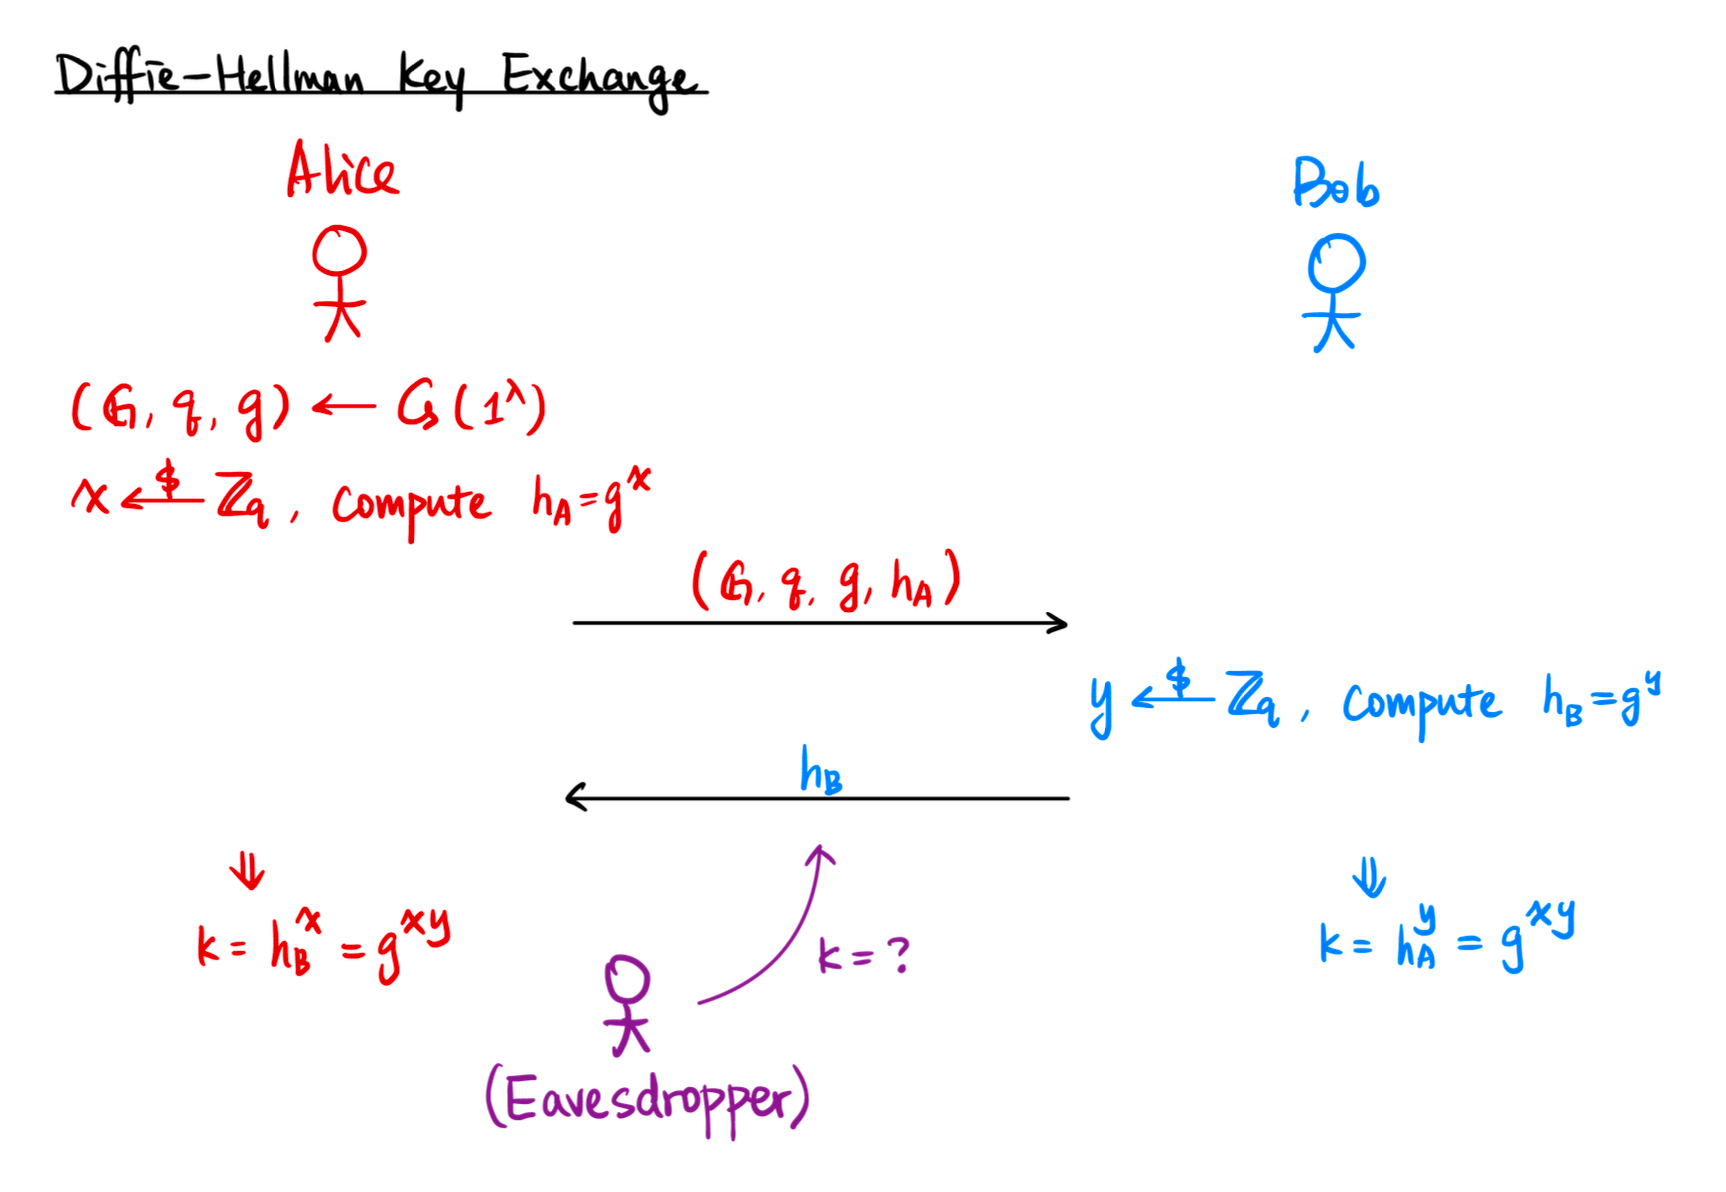 Diffie-Hellman Key Exchange
Alice
Bob
(𝔾, q, g) ← 𝒢(1^λ)
x ←$ ℤ_q, compute h_A = g^x
(𝔾, q, g, h_A)
y ←$ ℤ_q, compute h_B = g^y
h_B
⇓
⇓
k = h_B^x = g^xy
k = ?
k = h_A^y = g^xy
(Eavesdropper)